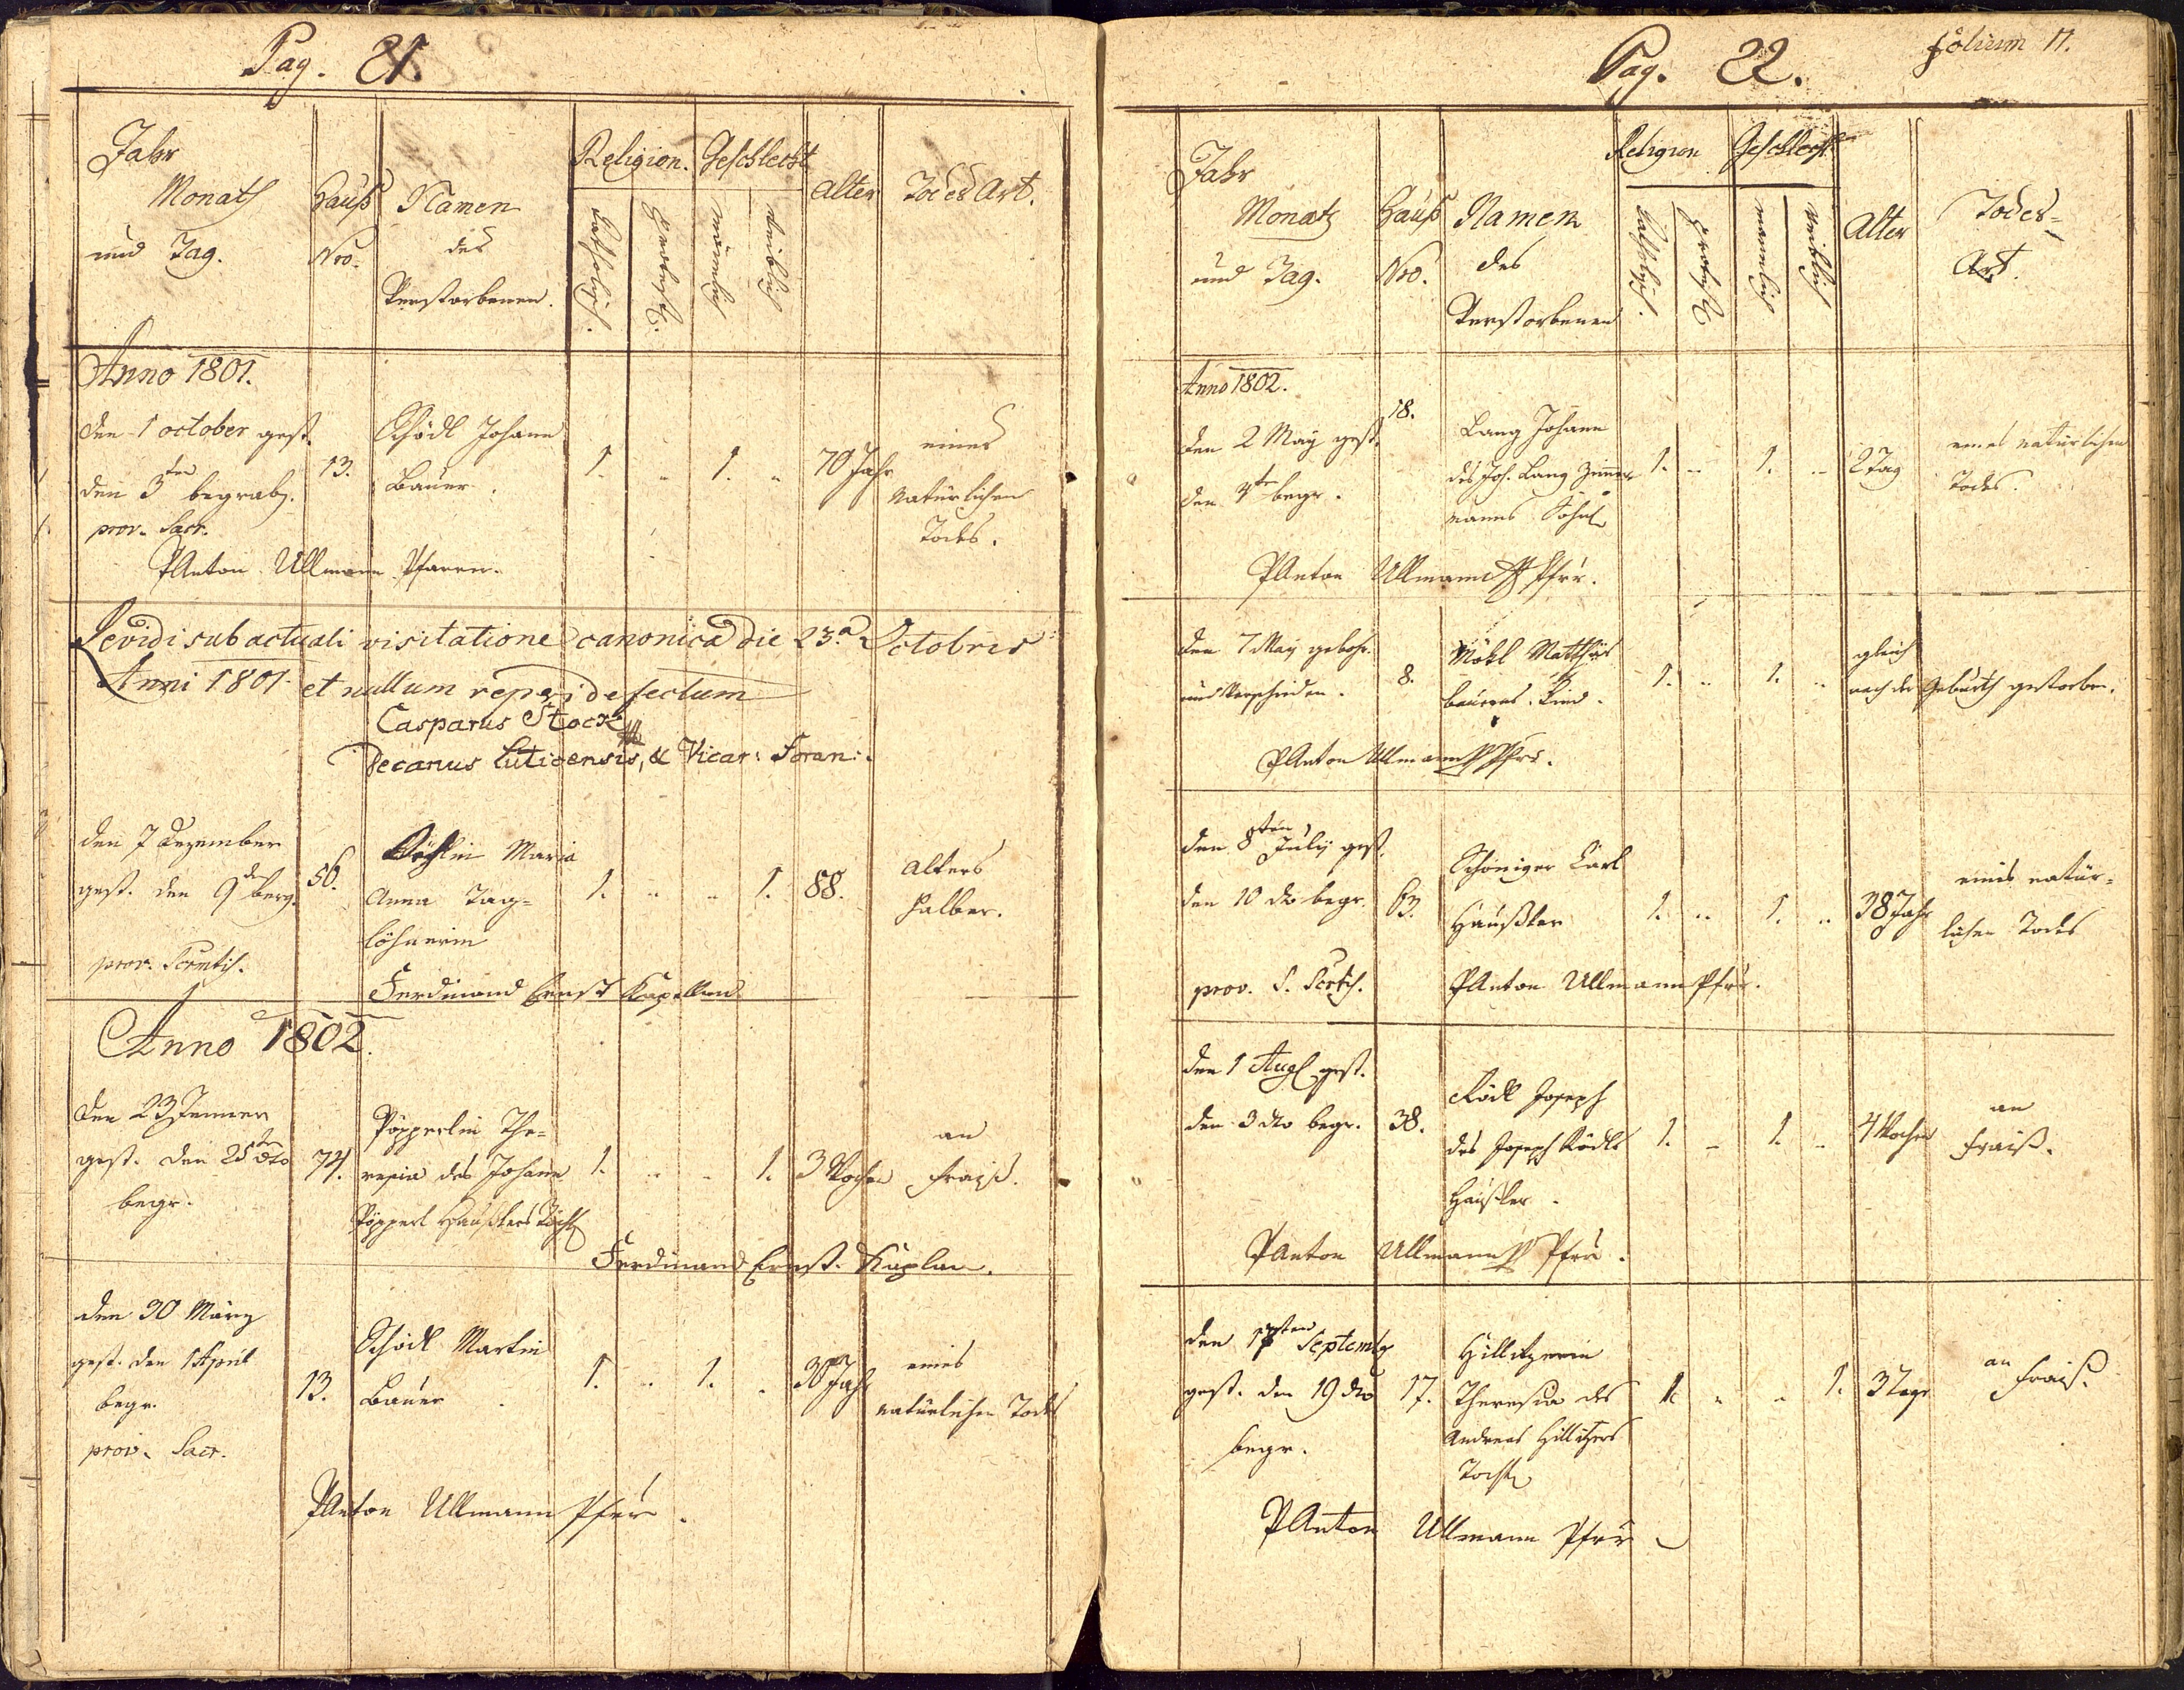 Pag. 21.
Jahr
Monath
und Tag.
Hauß
Nro.
Namen
des
Verstorbenen.
Religion.
Katholisch.
Protest.
Geschlecht
männlich
weiblich
Alter
Todes Art.
Anno 1801.
den 1 october gest.
den 3ten begrab.
prov. Sacr.
13.
Schödl Johann
Bauer
1. " 1. "
70 Jahr
eines
natürlichen
Todes.
P Anton Ullmann Pfarrer.
Revidi sub actuali visitatione canonica die 23.a Octobris
Anni 1801 et nullum reperi defectum
Casparus Stock
Decanus Luticensis, & Vicar: Foran:.
den 7 Dezember
gest. den 9 den begr.
prov.
56.
Maria
Anna Tag=
löhnerin
1. " " 1.
88.
Alters
halber.
Ferdinand Ernst Kapellan
Anno 1802.
den 23 Jenner
gest. den 25ten dto
begr.
74.
Pöpperlin The=
resia des Johann
Pöpperl Haußlers Tocht.
1. " " 1.
3 Wochen
an
Fraiß.
Ferdinand Ernst. Kaplan.
den 30 März
gest. den 1 April
begr.
prov. Sacr.
13.
Schödl Martin
Bauer
1. " 1. "
Jahr
eines
natürlichen Todes
P Anton Ullmann Pfrr.
Pag. 22.
folium 11.
Jahr
Monath
und Tag.
Hauß
Nro.
Namen
des
Verstorbenen
Religion
Katholisch.
Protest
Geschlecht
mannlich
weiblich
Alter
Todes=
Art.
Anno 1802.
den 2 May gest.
den 4ten begr.
18.
Lang Johann
des Joh. Lang Zimmer
manns Sohnl
1. " 1. "
2 Tag
eines natürlichen
Todes.
P Anton Ullmann Pfrr.
den 7 May gebohr.
und verschieden.
8.
Mökl Matthäs
bauerns Kind.
1. " 1. "
gleich
nach der Geburth gestorben.
P Anton Ullmann Pfrr.
den 8ten July gest.
den 10 dto begr.
prov. S.
63.
Schöniger Karl
Haußler
1. " 1. "
38 Jahr
eines natür=
lichen Todes
P Anton Ullmann Pfrr.
den 1 Aug gest.
den 3 dto begr.
38.
Rödl Joseph
des Joseph Rödls
Haußler.
1. " 1. "
4 Wochen
an
Fraiß.
P Anton Ullmann Pfrr.
den 17ten Septemb
gest. den 19 dto
begr.
17.
Hillitzerin
Theresia des
Andreas Hillitzers
Tocht.
1. " " 1.
3 Tage
an
Fraiß.
P Anton Ullmann Pfrr